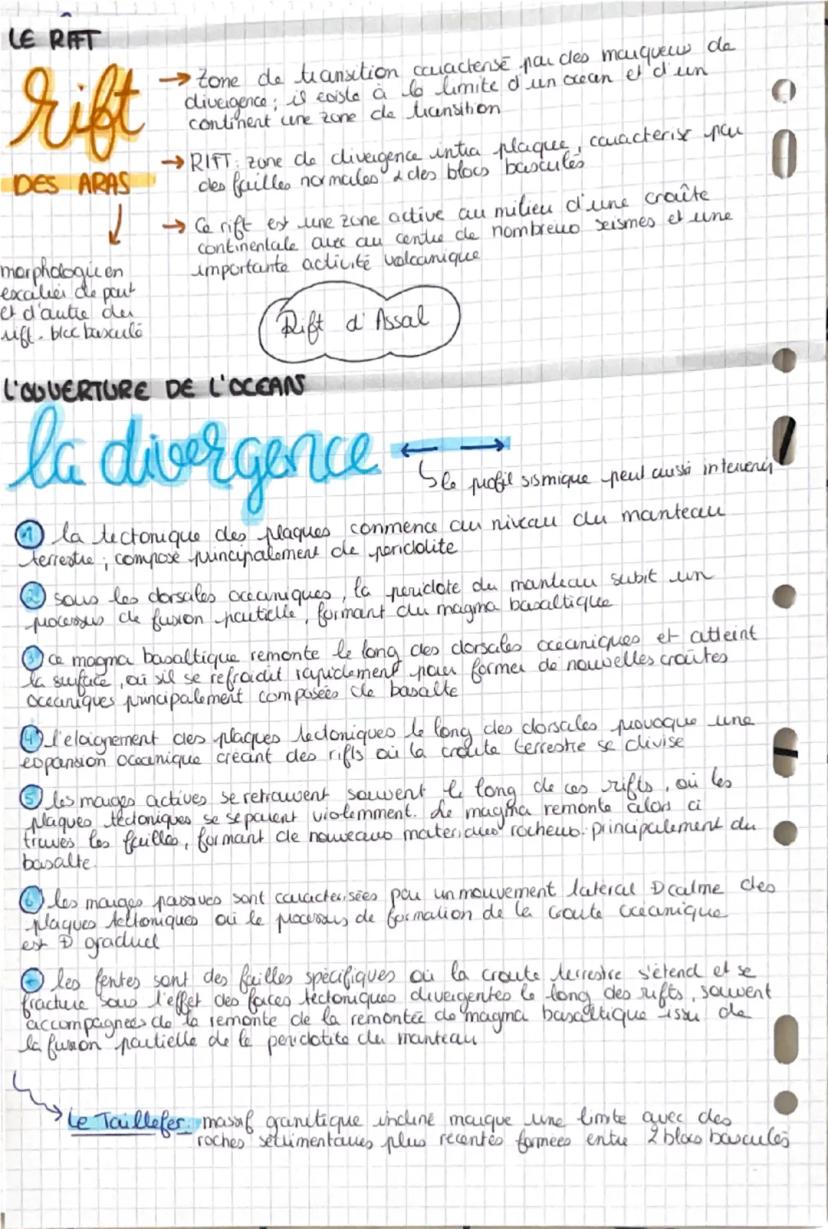 LE RIFT
rift
DES ARAS
morphologie en
escalier de part
et d'autre du
rift. bloc basculé
→ zone de transition caractérisé par des marqueurs de
divergence ; il existe à la limite d'un océan et d'un
continent une zone de transition
→ RIFT : zone de divergence intra plaque, caractérisé par
des failles normales & des blocs basculés
→ Ce rift est une zone active au milieu d'une croûte
continentale avec au centre de nombreux seismes et une
importante activité volcanique
Rift d'Assal
L'OUVERTURE DE L'OCEANS
la divergence
le profil sismique peut aussi intervenir
1 la tectonique des plaques commence au niveau du manteau
terrestre ; composé principalement de peridolite
2 sous les dorsales océaniques, la peridote du manteau subit un
processus de fusion partielle, formant du magma basaltique
3 ce magma basaltique remonte le long des dorsales océaniques et atteint
la surface, où sil se refroidit rapidement pour former de nouvelles croûtes
océaniques principalement composées de basalte
4 l'éloignement des plaques tectoniques le long des dorsales provoque une
expansion océanique créant des rifts où la croûte terrestre se divise
5 les marges actives se retrouvent souvent le long de ces rifts, où les
plaques tectoniques se séparent violemment. Le magma remonte alors a
travers les failles, formant de nouveaux materiaux rocheux. principalement du
basalte.
6 les marges passives sont caractérisées par un mouvement latéral calme des
plaques tectoniques où le processus de formation de la croute océanique
est graduel
7 les fentes sont des failles spécifiques où la croute terrestre s'étend et se
fracture sous l'effet des forces tectoniques divergentes le long des rifts, souvent
accompagnées de la remonte de la remontée de magma basaltique issu de
la fusion partielle de le peridotite du manteau
Le Taillefer : massif granitique incliné marque une limite avec des
roches sédimentaires plus recentes formées entre 2 blocs basculés